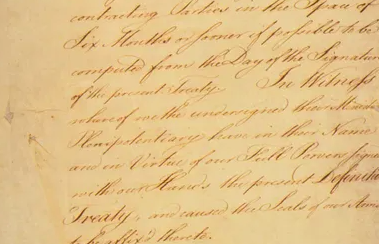 contracting Parties in the Space of
Six Months or sooner if possible to be
computed from the Day of the Signature
of the present Treaty. In Witness
whereof we the undersigned their Ministers
Plenipotentiary have in their Name
and in Virtue of our Full Powers signed
with our Hands the present Definitive
Treaty, and caused the Seals of our Arms
to be affix'd thereto.